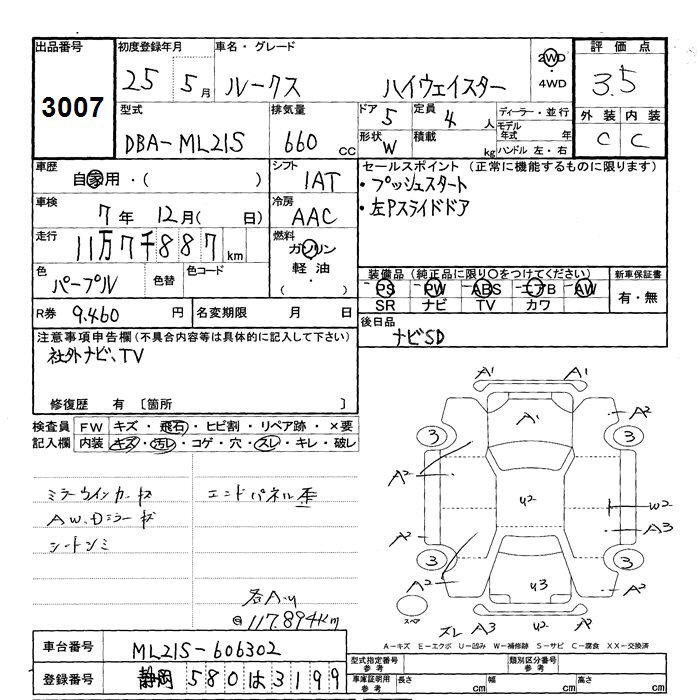 出品番号 初度登録年月 車名・グレード 評価点
3007 25 5月 ルークス ハイウェイスター 2WD ・ 4WD 3.5
型式 排気量 ドア 定員 ディーラー・並行 外装 内装
DBA-ML21S 660 cc 5 4 人 モデル年式 年 C C
形状 W 積載 kg ハンドル 左・右
車歴 シフト セールスポイント(正常に機能するものに限ります)
自家用・( ) IAT ・プッシュスタート
車検 冷房 ・左Pスライドドア
7年 12月( 日) AAC
走行 燃料
11万7千887 km ガソリン
軽油
( ・ )
色 色替 色コード 装備品(純正品に限り○をつけてください) 新車保証書
パープル PS PW ABS エアB AW 有・無
SR ナビ TV カワ
R券 9.460 円 名変期限 月 日 後日品
ナビSD
注意事項申告欄(不具合内容等は具体的に記入して下さい)
社外ナビ、TV
修復歴 有 〔箇所 〕
検査員 FW キズ・飛石・ヒビ割・リペア跡・×要
記入欄 内装 キズ・汚レ・コゲ・穴・スレ・キレ・破レ
ミラーウインカーキズ エンドパネル歪
AW、Dミラーキズ
シートシミ
各A・U
@117.894km
A1 A1
A1 A2
3 3
A2
U2 W2
A3
A2
3 3
A2 A2
U3
スペア スレ A3 U2 A2
A-キズ E-エクボ U-凹み W-補修跡 S-サビ C-腐食 XX-交換済
車台番号 ML21S-606302
登録番号 静岡 580 は 3199
型式指定番号 参考 類別区分番号 参考
車庫証明用 参考 長さ cm 幅 cm 高さ cm